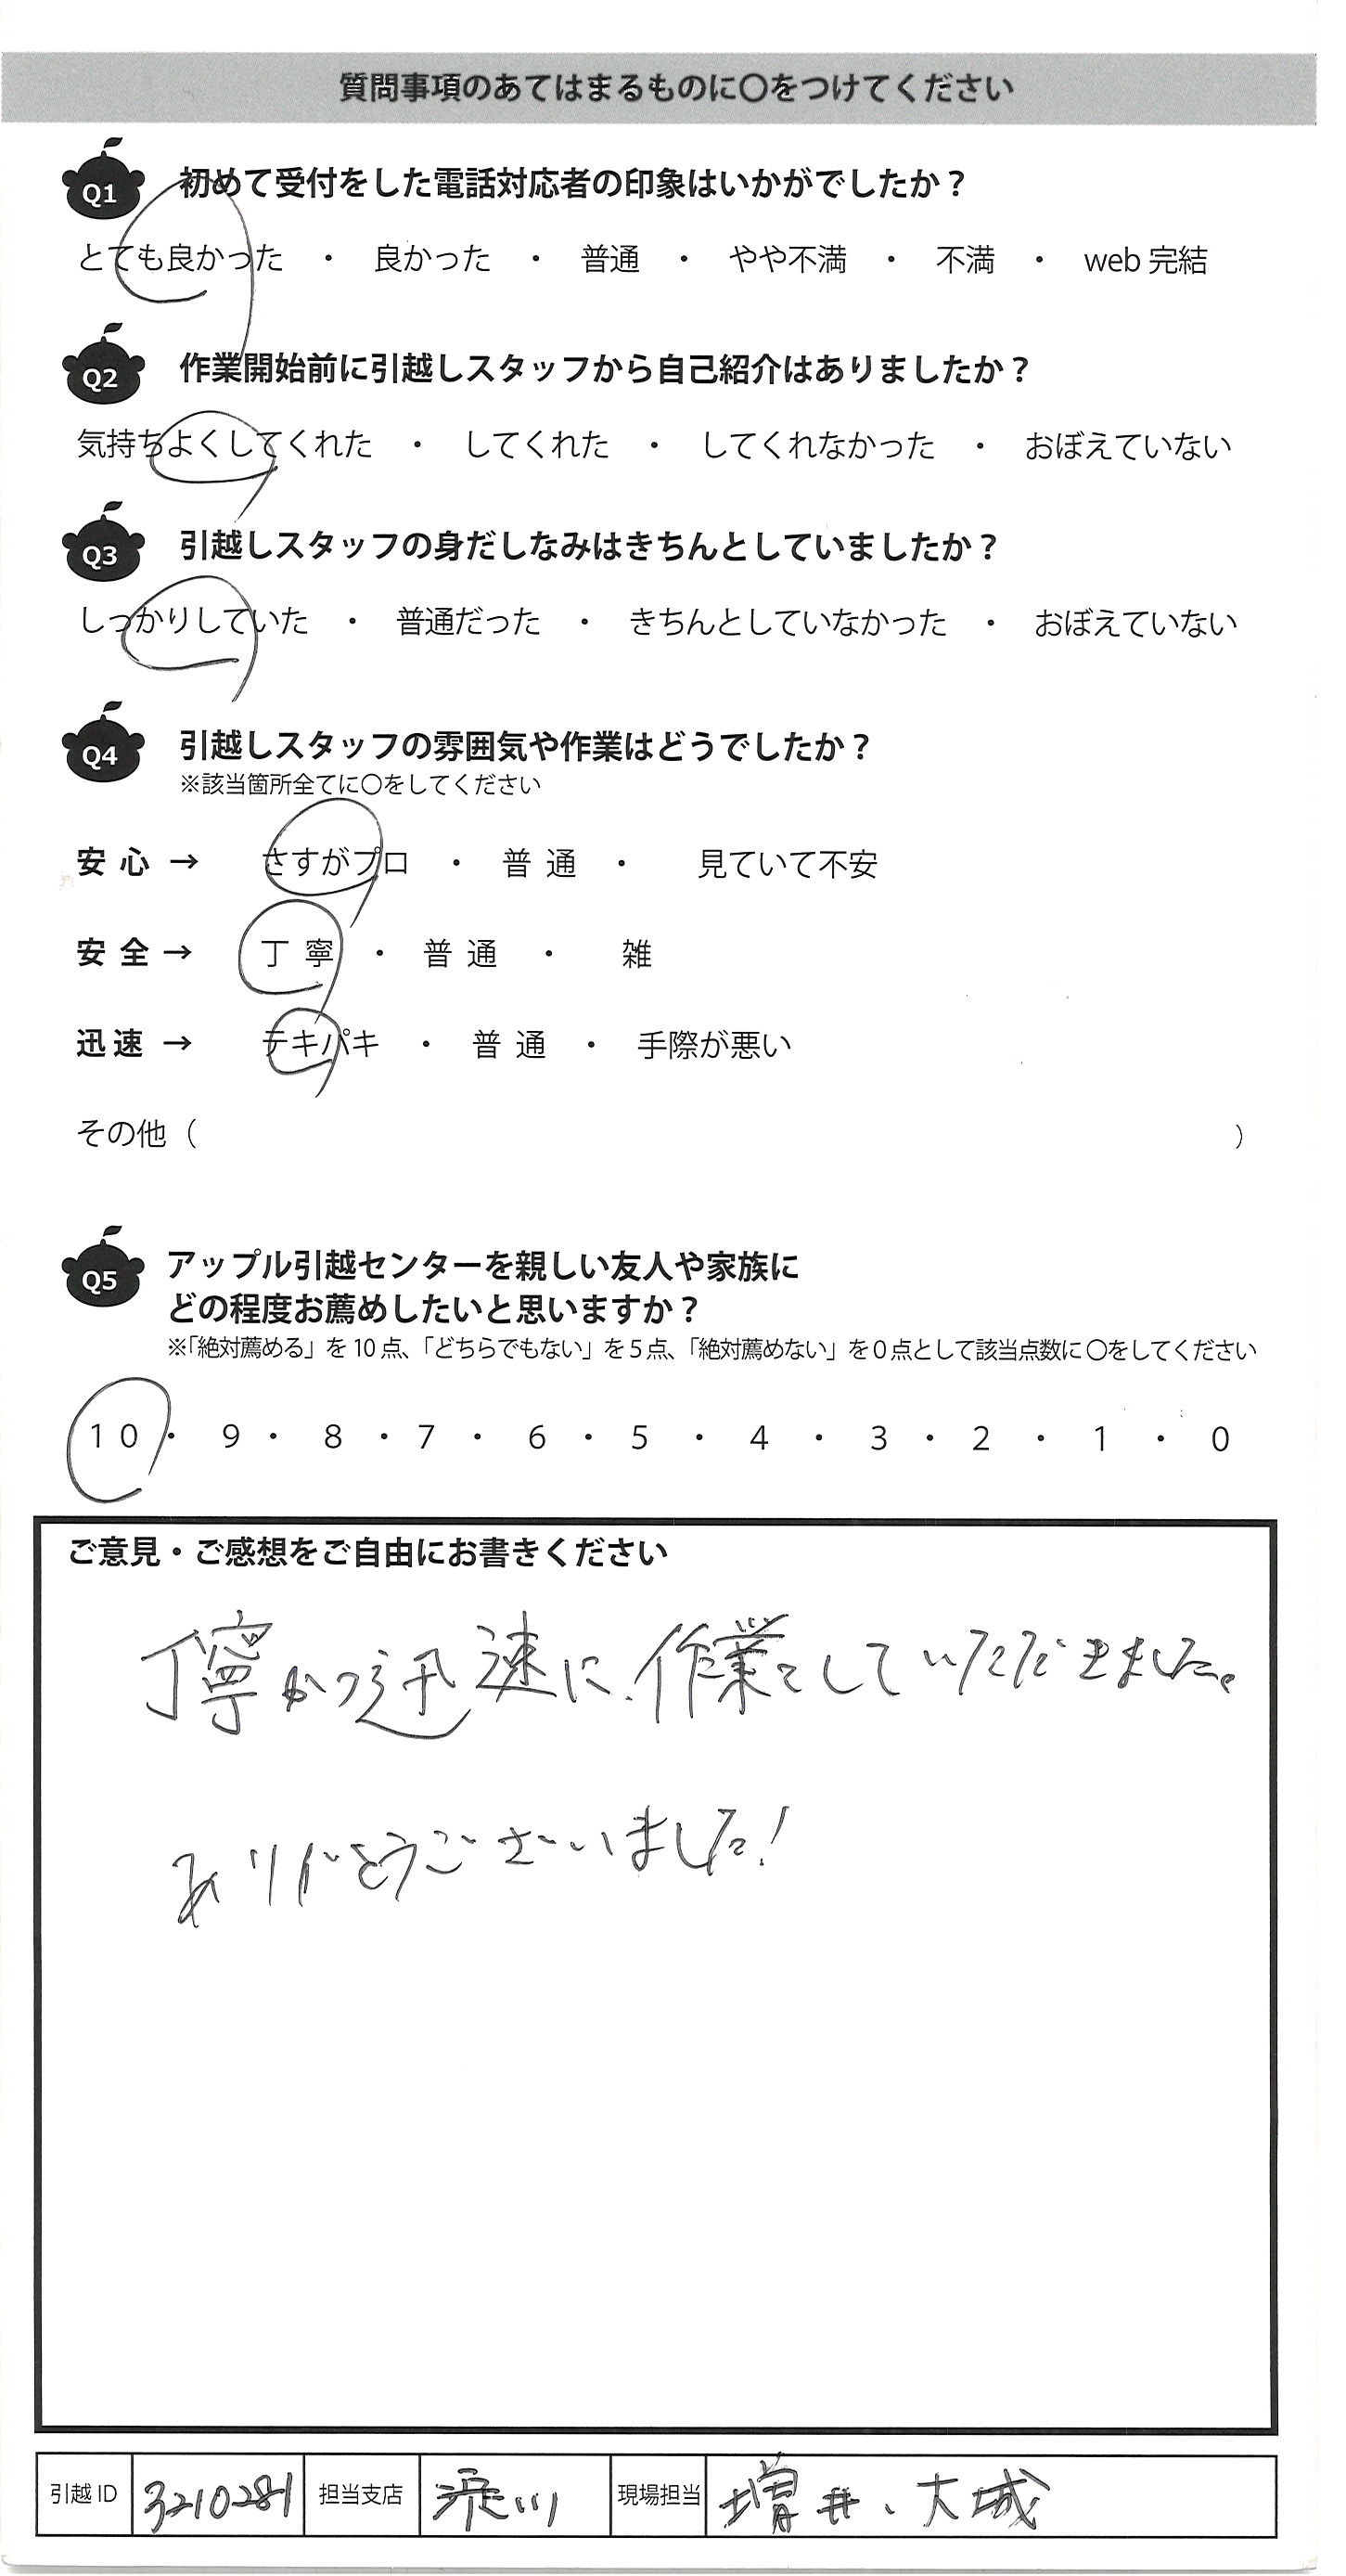 質問事項のあてはまるものに〇をつけてください
Q1 初めて受付をした電話対応者の印象はいかがでしたか？
とても良かった ・ 良かった ・ 普通 ・ やや不満 ・ 不満 ・ web 完結
Q2 作業開始前に引越しスタッフから自己紹介はありましたか？
気持ちよくしてくれた ・ してくれた ・ してくれなかった ・ おぼえていない
Q3 引越しスタッフの身だしなみはきちんとしていましたか？
しっかりしていた ・ 普通だった ・ きちんとしていなかった ・ おぼえていない
Q4 引越しスタッフの雰囲気や作業はどうでしたか？
※該当箇所全てに〇をしてください
安心 → さすがプロ ・ 普通 ・ 見ていて不安
安全 → 丁寧 ・ 普通 ・ 雑
迅速 → テキパキ ・ 普通 ・ 手際が悪い
その他（ ）
Q5 アップル引越センターを親しい友人や家族に
どの程度お薦めしたいと思いますか？
※「絶対薦める」を 10 点、「どちらでもない」を 5 点、「絶対薦めない」を 0 点として該当点数に 〇をしてください
10 ・ 9 ・ 8 ・ 7 ・ 6 ・ 5 ・ 4 ・ 3 ・ 2 ・ 1 ・ 0
ご意見・ご感想をご自由にお書きください
丁寧かつ迅速に、作業をして いただきました。
ありがとうございました！
引越 ID 3210281 担当支店 現場担当 増井、大城